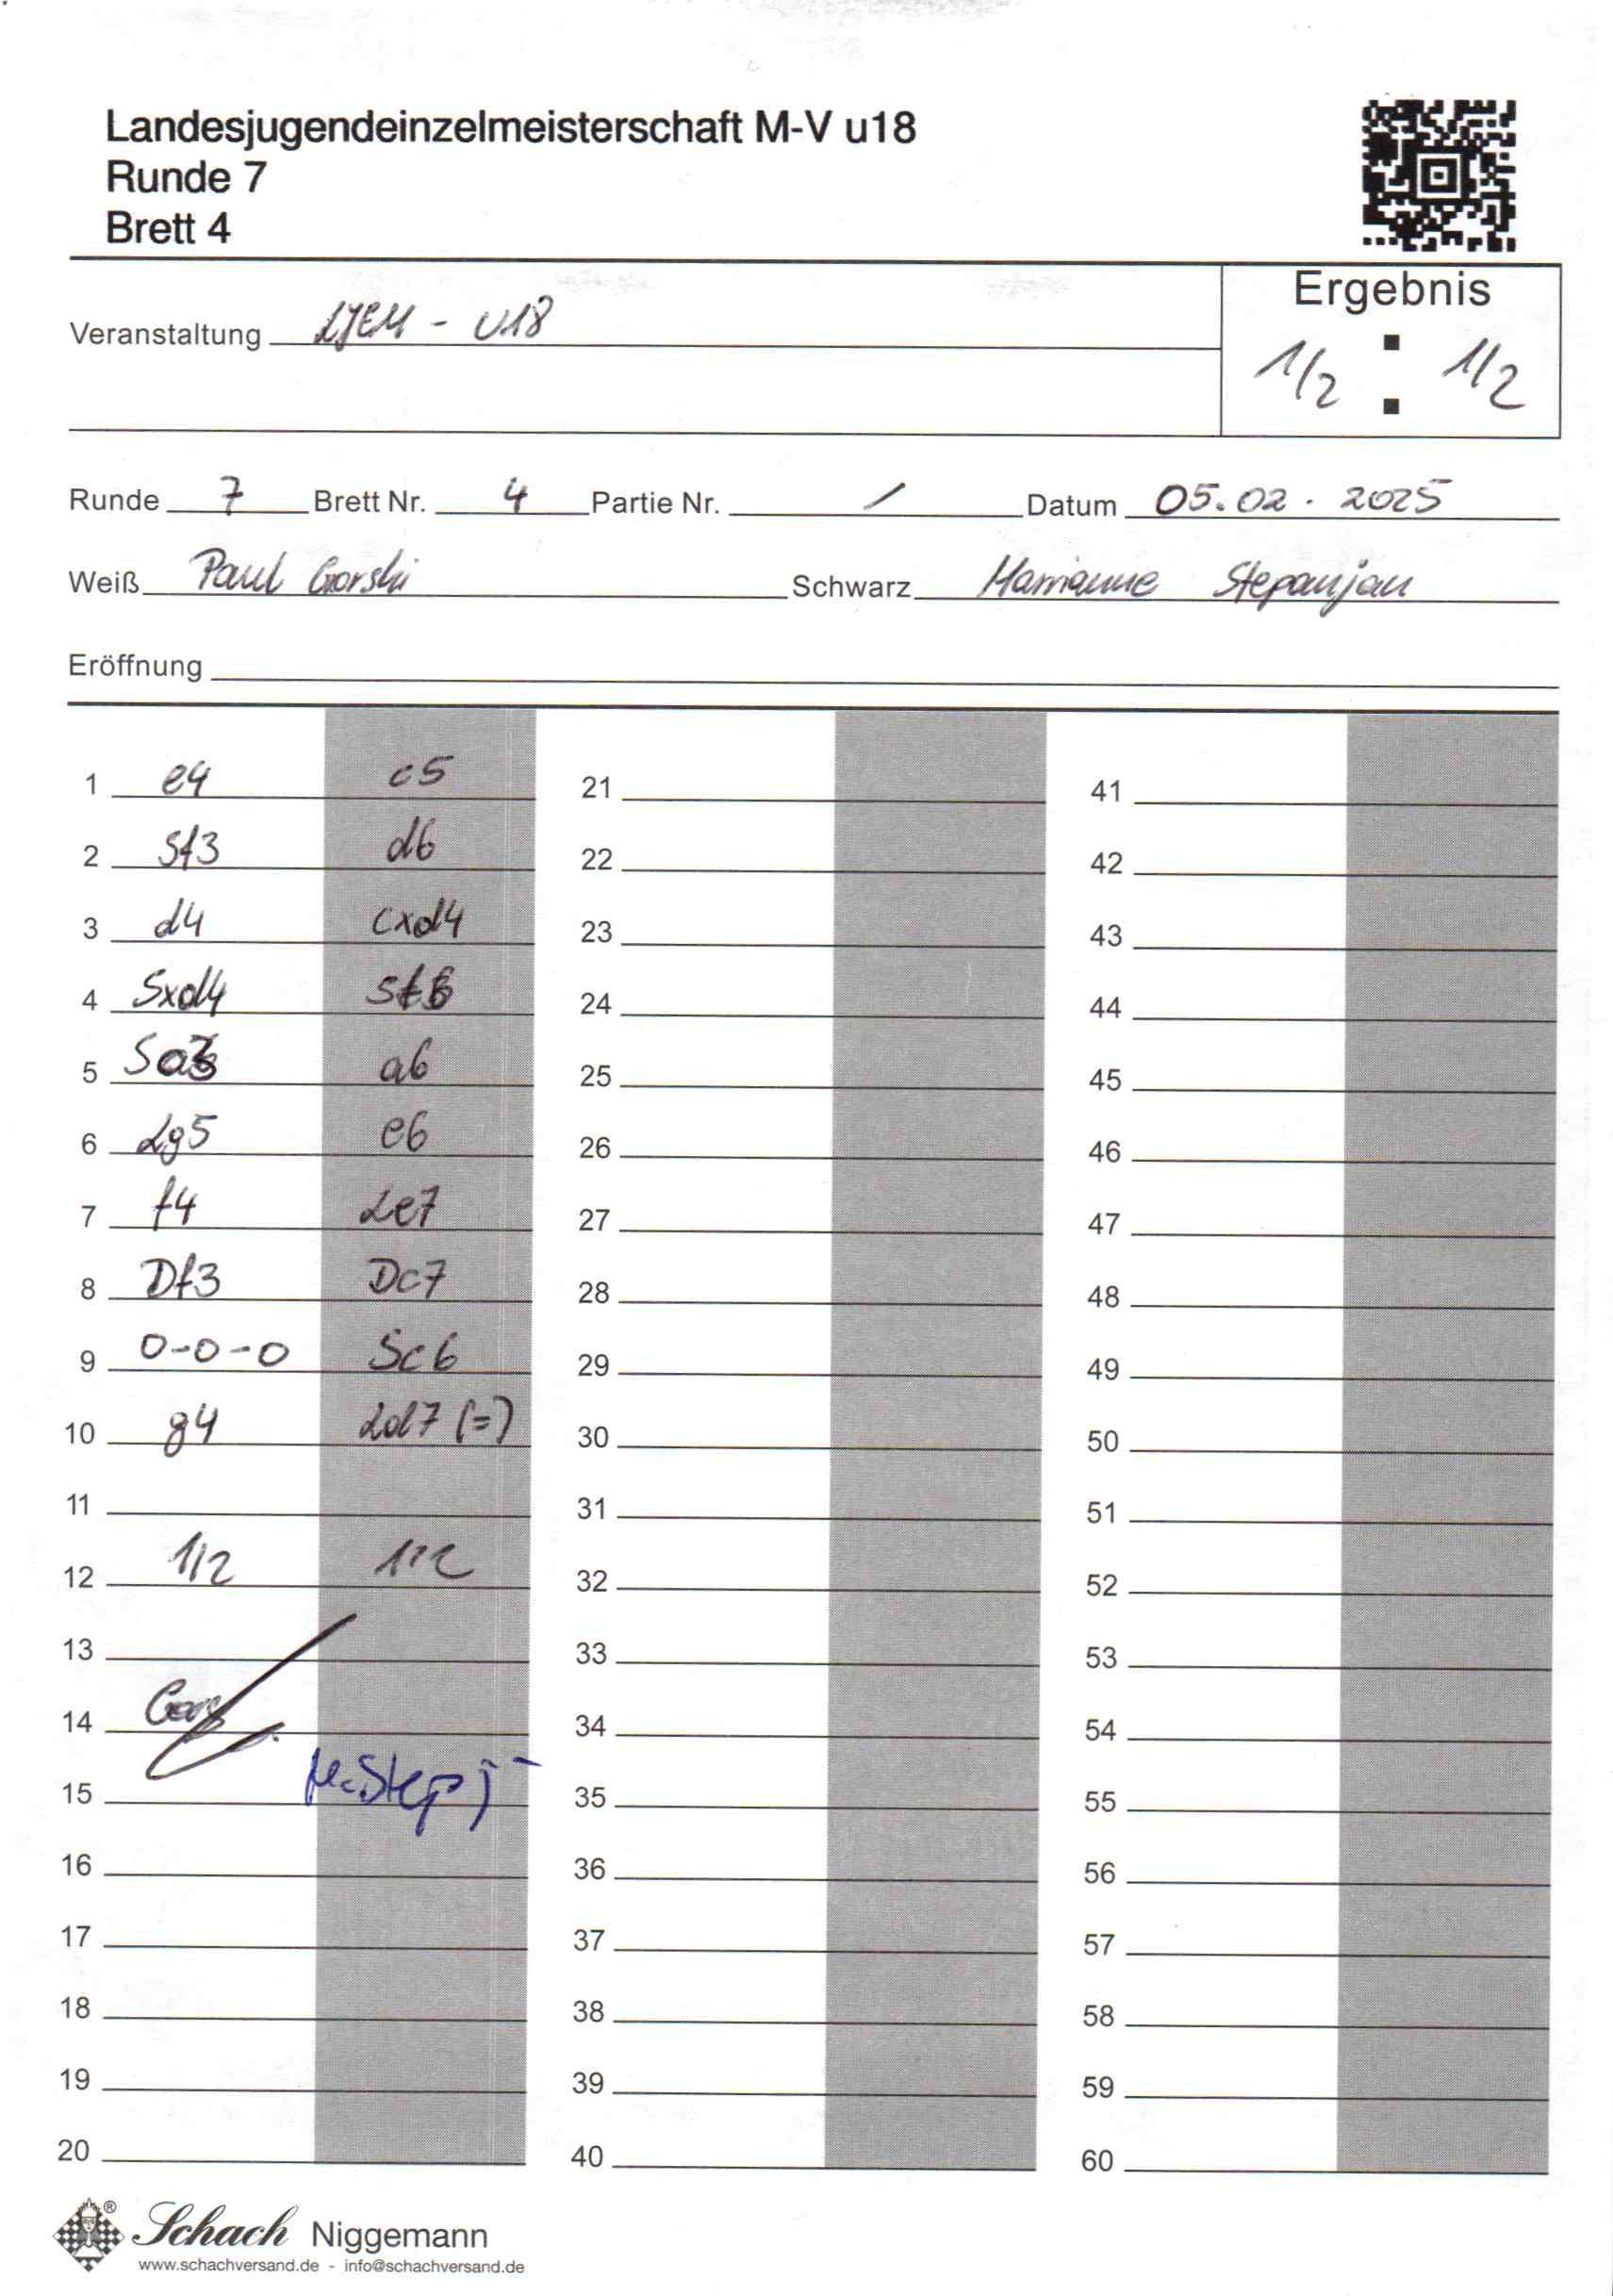 Landesjugendeinzelmeisterschaft M-V u18
Runde 7
Brett 4
Ergebnis
Veranstaltung LJEM - U18
1/2 : 1/2
Runde 7 Brett Nr. 4 Partie Nr. / Datum 05.02.2025
Weiß Paul Gorski Schwarz Marianne Stepanjan
Eröffnung
1 e4 c5
2 Sf3 d6
3 d4 cxd4
4 Sxd4 Sf6
5 a6
6 Lg5 e6
7 f4 Le7
8 Df3 Dc7
9 0-0-0 Sc6
10 g4 Ld7 (=)
11
12 1/2 1/2
13
14
15
16
17
18
19
20
21
22
23
24
25
26
27
28
29
30
31
32
33
34
35
36
37
38
39
40
41
42
43
44
45
46
47
48
49
50
51
52
53
54
55
56
57
58
59
60
® Schach Niggemann
www.schachversand.de - info@schachversand.de